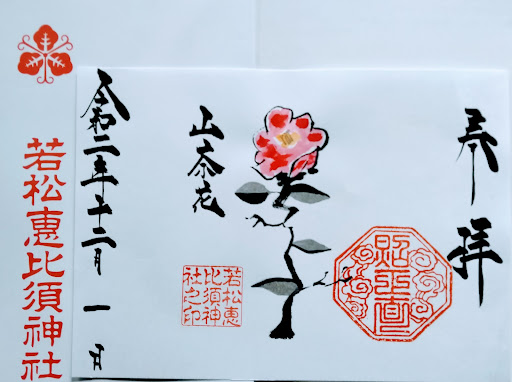 奉拝
山茶花
若松恵
比須神
社之印
令和二年十二月一日
若松恵比須神社